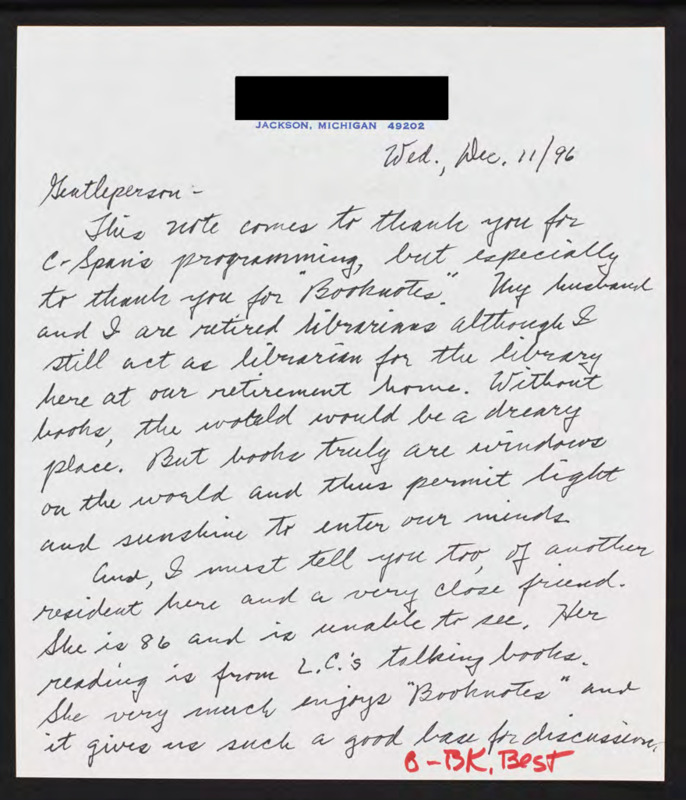 JACKSON, MICHIGAN 49202
Wed., Dec. 11/96
Gentleperson -
This note comes to thank you for
C-Span's programming, but especially
to thank you for "Booknotes". My husband
and I are retired librarians although I
still act as librarian for the library
here at our retirement home. Without
books, the world would be a dreary
place. But books truly are windows
on the world and thus permit light
and sunshine to enter our minds.
And, I must tell you too, of another
resident here and a very close friend.
She is 86 and is unable to see. Her
reading is from L.C.'s talking books.
She very much enjoys "Booknotes" and
it gives us such a good base for discussion.
B-BK, Best